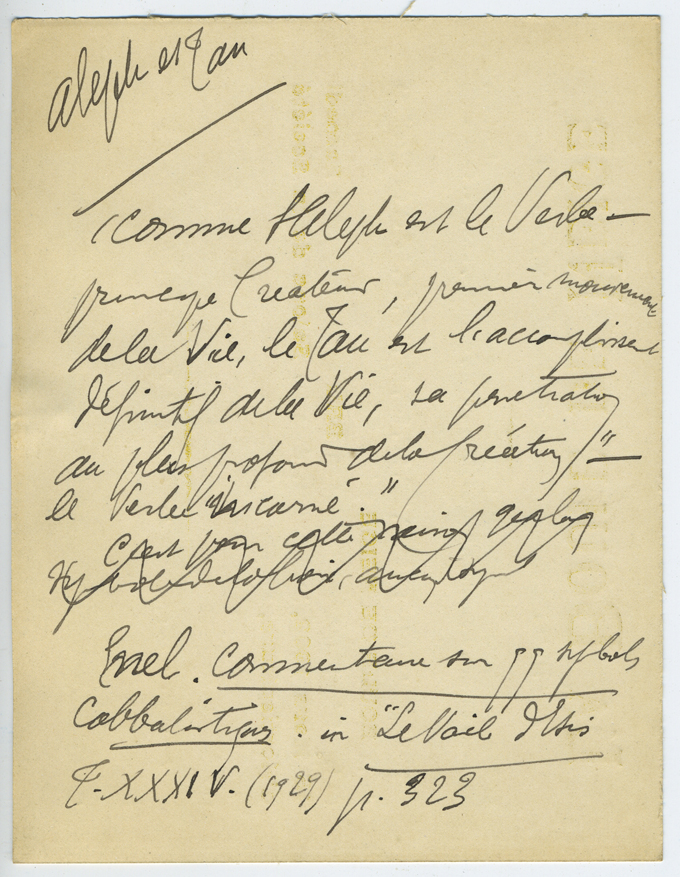 Aleph et Tau
"Comme Aleph est le Verbe –
principe Créateur, premier mouvement
de la Vie, le Tau est l'accomplissement
définitif de la Vie, sa pénétration
au plus profond de la Création" –
le Verbe "incarné."
C'est pour cette raison
symbole de la
Enel. Commentaire sur qq symbols
Cabbalistiques. in "Le Voile d'Isis
T. XXXIV. (1929) p. 323